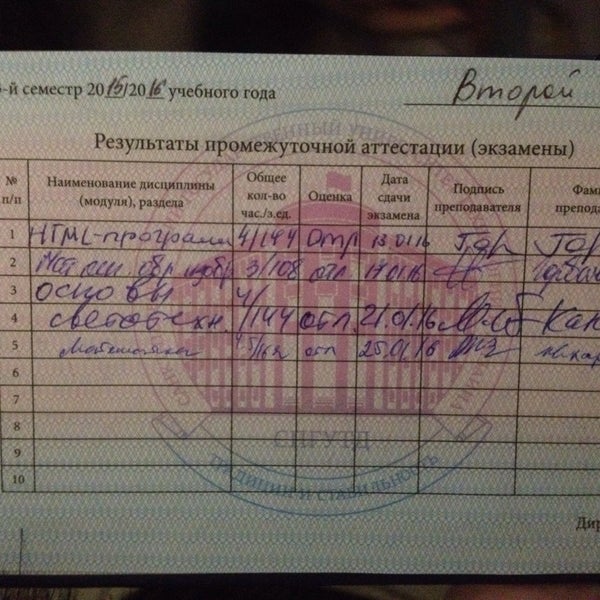 -й семестр 2015/2016 учебного года Второй
Результаты промежуточной аттестации (экзамены)
№ п/п Наименование дисциплины (модуля), раздела Общее кол-во час./з.ед. Оценка Дата сдачи экзамена Подпись преподавателя Фам препода
1 HTML-программ 4/144 Отл 13.01.16
2 Мат осн обр изобр 3/108 отл 17.01.16
3 основы 4/
4 светотехн. /144 отл 21.01.16 Кан
5 Математика отл 25.01.16
6
7
8
9
10
СПГУТД
ТРАДИЦИИ И СТАБИЛЬНОСТЬ
Дир